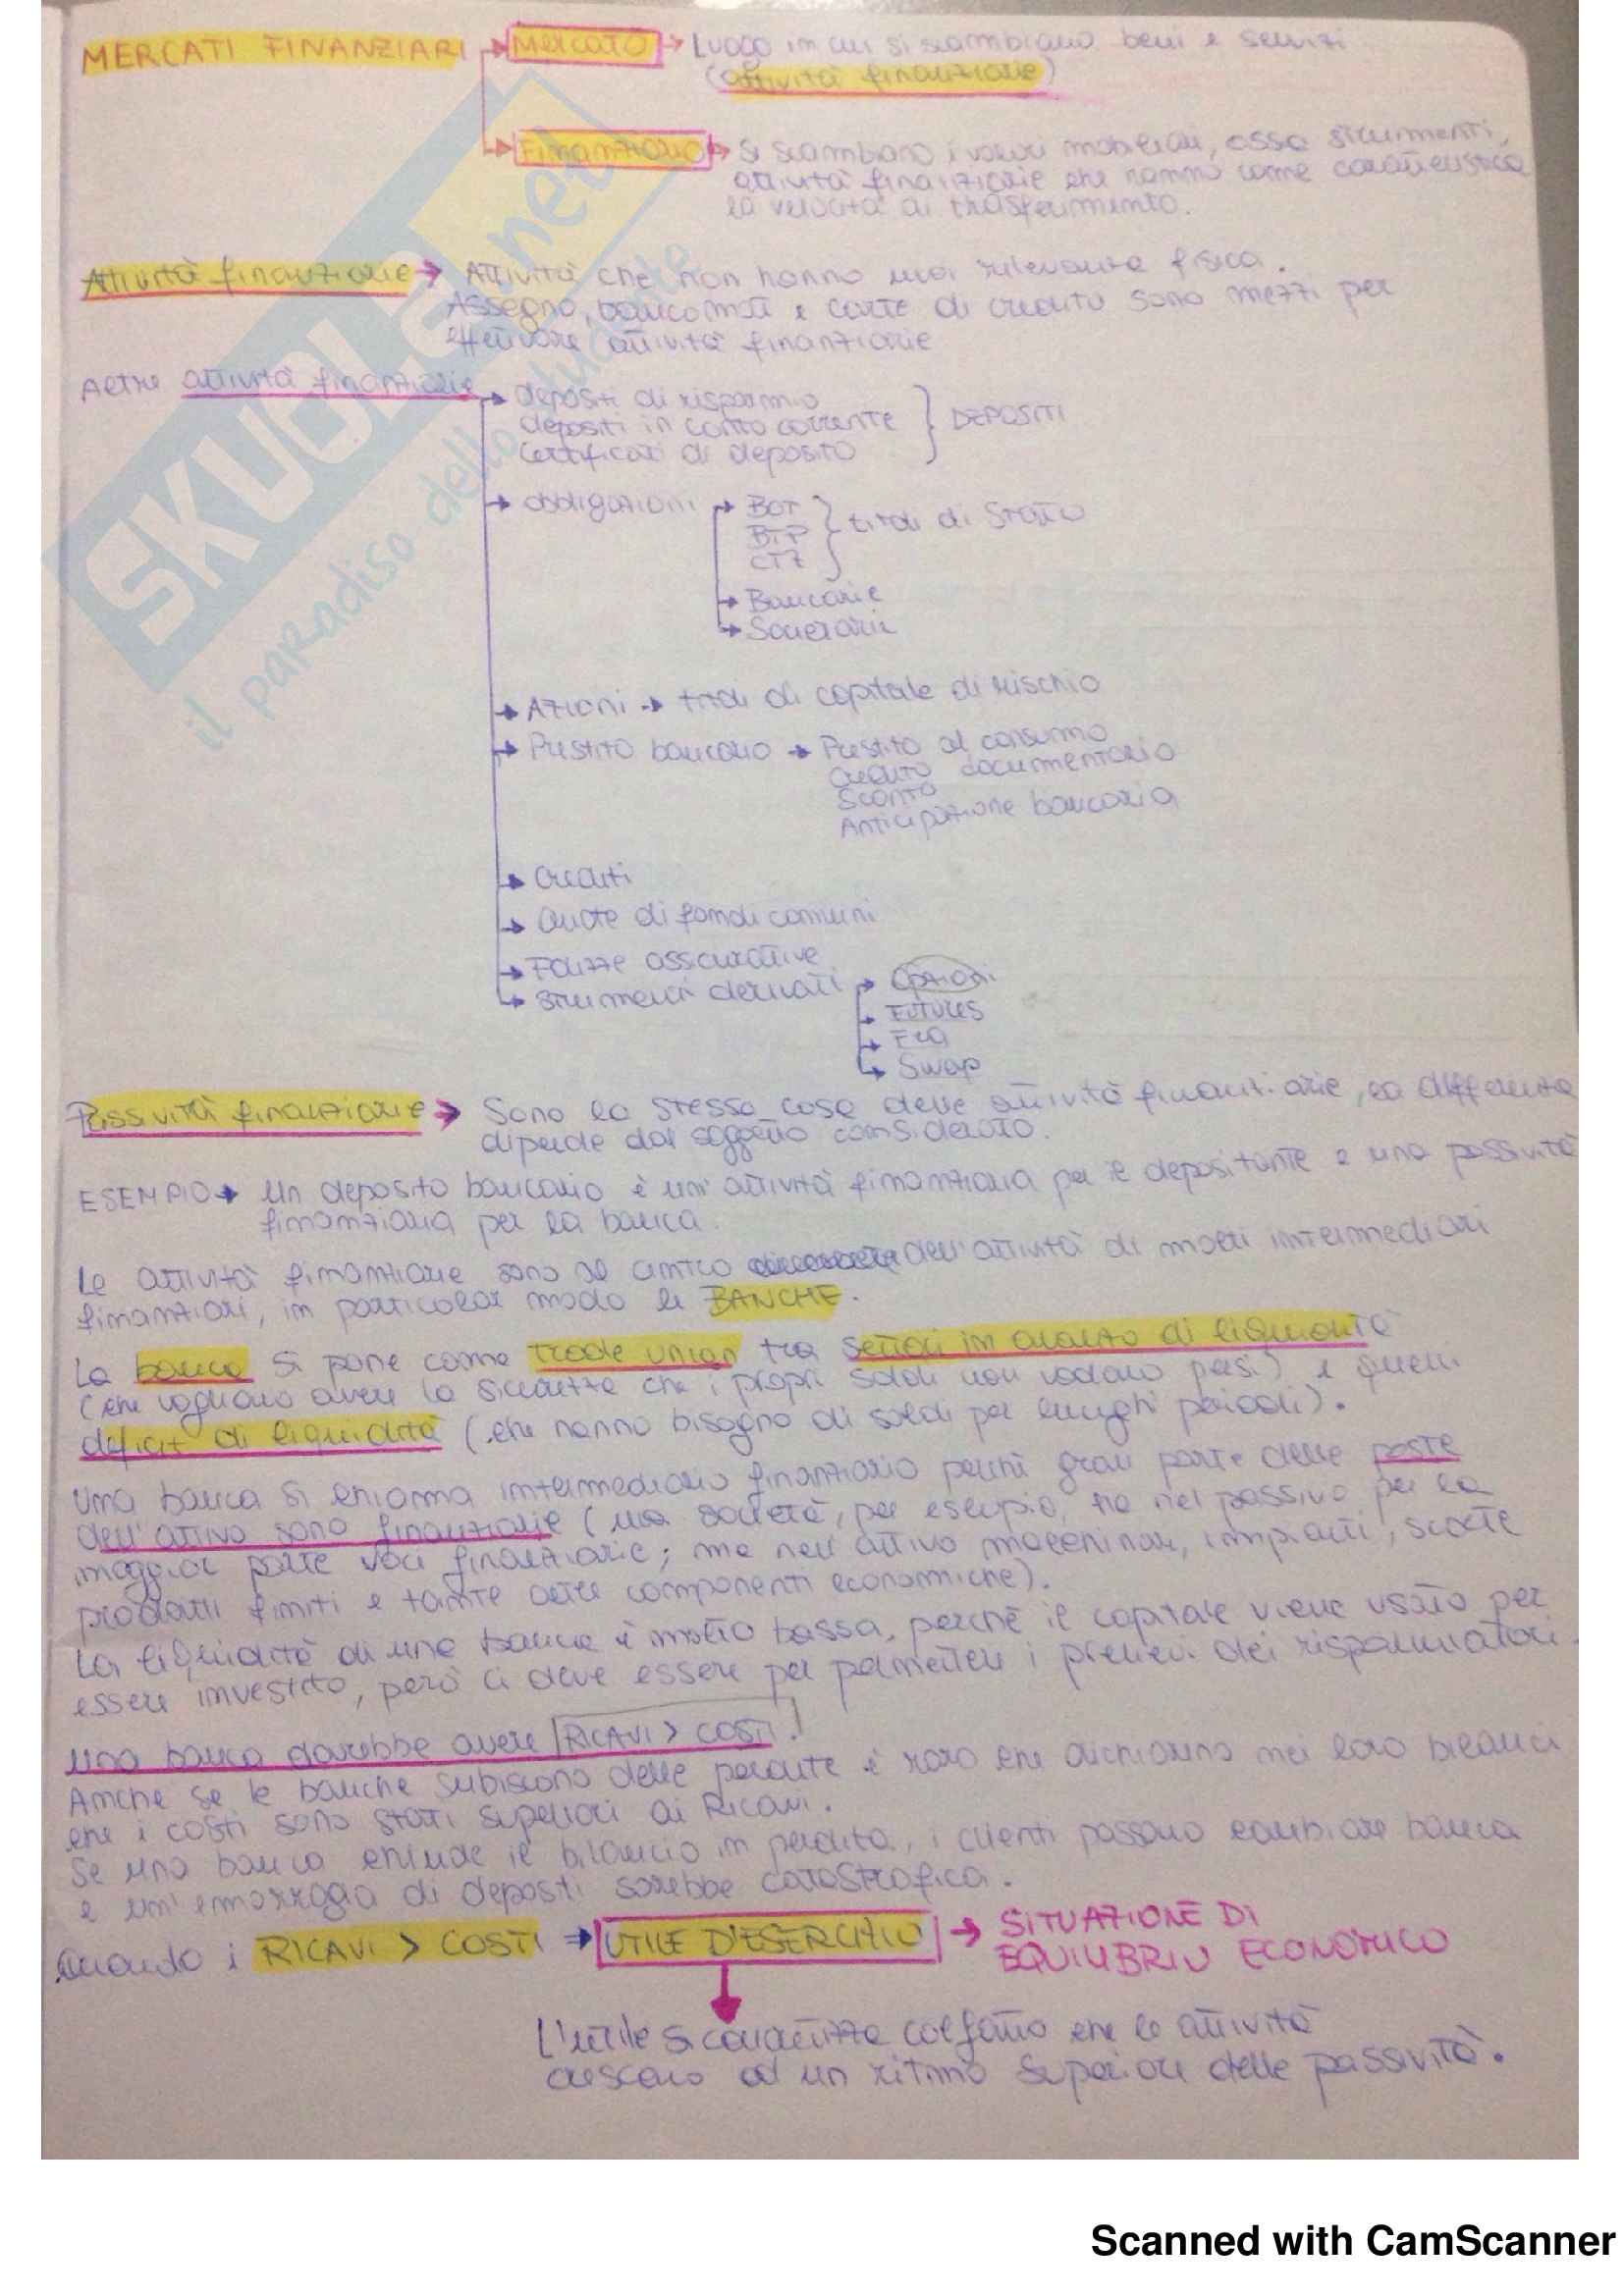 MERCATI FINANZIARI → Mercato → Luogo in cui si scambiano beni e servizi
(attività finanziarie)
→ Finanziario → Si scambiano i valori mobiliari, ossia strumenti,
attività finanziarie che hanno come caratteristica
la velocità di trasferimento.
Attività finanziarie → Attività che non hanno una rilevanza fisica.
Assegno, bancomat e carte di credito sono mezzi per
effettuare attività finanziarie
Altre attività finanziarie → depositi di risparmio
depositi in conto corrente } DEPOSITI
Certificati di deposito
→ obbligazioni → BOT
BTP } titoli di Stato
CTZ
→ Bancarie
→ Societarie
→ Azioni → titoli di capitale di rischio
→ Prestito bancario → Prestito al consumo
Credito documentario
Sconto
Anticipazione bancaria
→ Crediti
→ Quote di fondi comuni
→ Polizze assicurative
→ Strumenti derivati → Opzioni
→ Futures
→ FRA
→ Swap
Passività finanziarie → Sono la stessa cosa delle attività finanziarie, la differenza
dipende dal soggetto considerato.
ESEMPIO → Un deposito bancario è un'attività finanziaria per il depositante e una passività
finanziaria per la banca.
Le attività finanziarie sono al centro dell'attività di molti intermediari
finanziari, in particolar modo le BANCHE.
La banca si pone come trade union tra settori in avanzo di liquidità
(che vogliono avere la sicurezza che i propri soldi non vadano persi) e quelli
deficit di liquidità (che hanno bisogno di soldi per lunghi periodi).
Una banca si chiama intermediario finanziario perché gran parte delle poste
dell'attivo sono finanziarie (una società, per esempio, ha nel passivo per la
maggior parte voci finanziarie; ma nell'attivo macchinari, impianti, scorte
prodotti finiti e tante altre componenti economiche).
La liquidità di una banca è molto bassa, perché il capitale viene usato per
essere investito, però ci deve essere per permettere i prelievi dei risparmiatori.
Una banca dovrebbe avere RICAVI > COSTI.
Anche se le banche subiscono delle perdite è raro che dichiarino nei loro bilanci
che i costi sono stati superiori ai Ricavi.
Se una banca chiude il bilancio in perdita, i clienti possono cambiare banca
e un'emorragia di depositi sarebbe catastrofica.
Quando i RICAVI > COSTI ⇒ UTILE D'ESERCIZIO → SITUAZIONE DI
EQUILIBRIO ECONOMICO
L'utile si caratterizza col fatto che le attività
crescano ad un ritmo superiore delle passività.
SKUOLA.net
il paradiso dello studente
Scanned with CamScanner